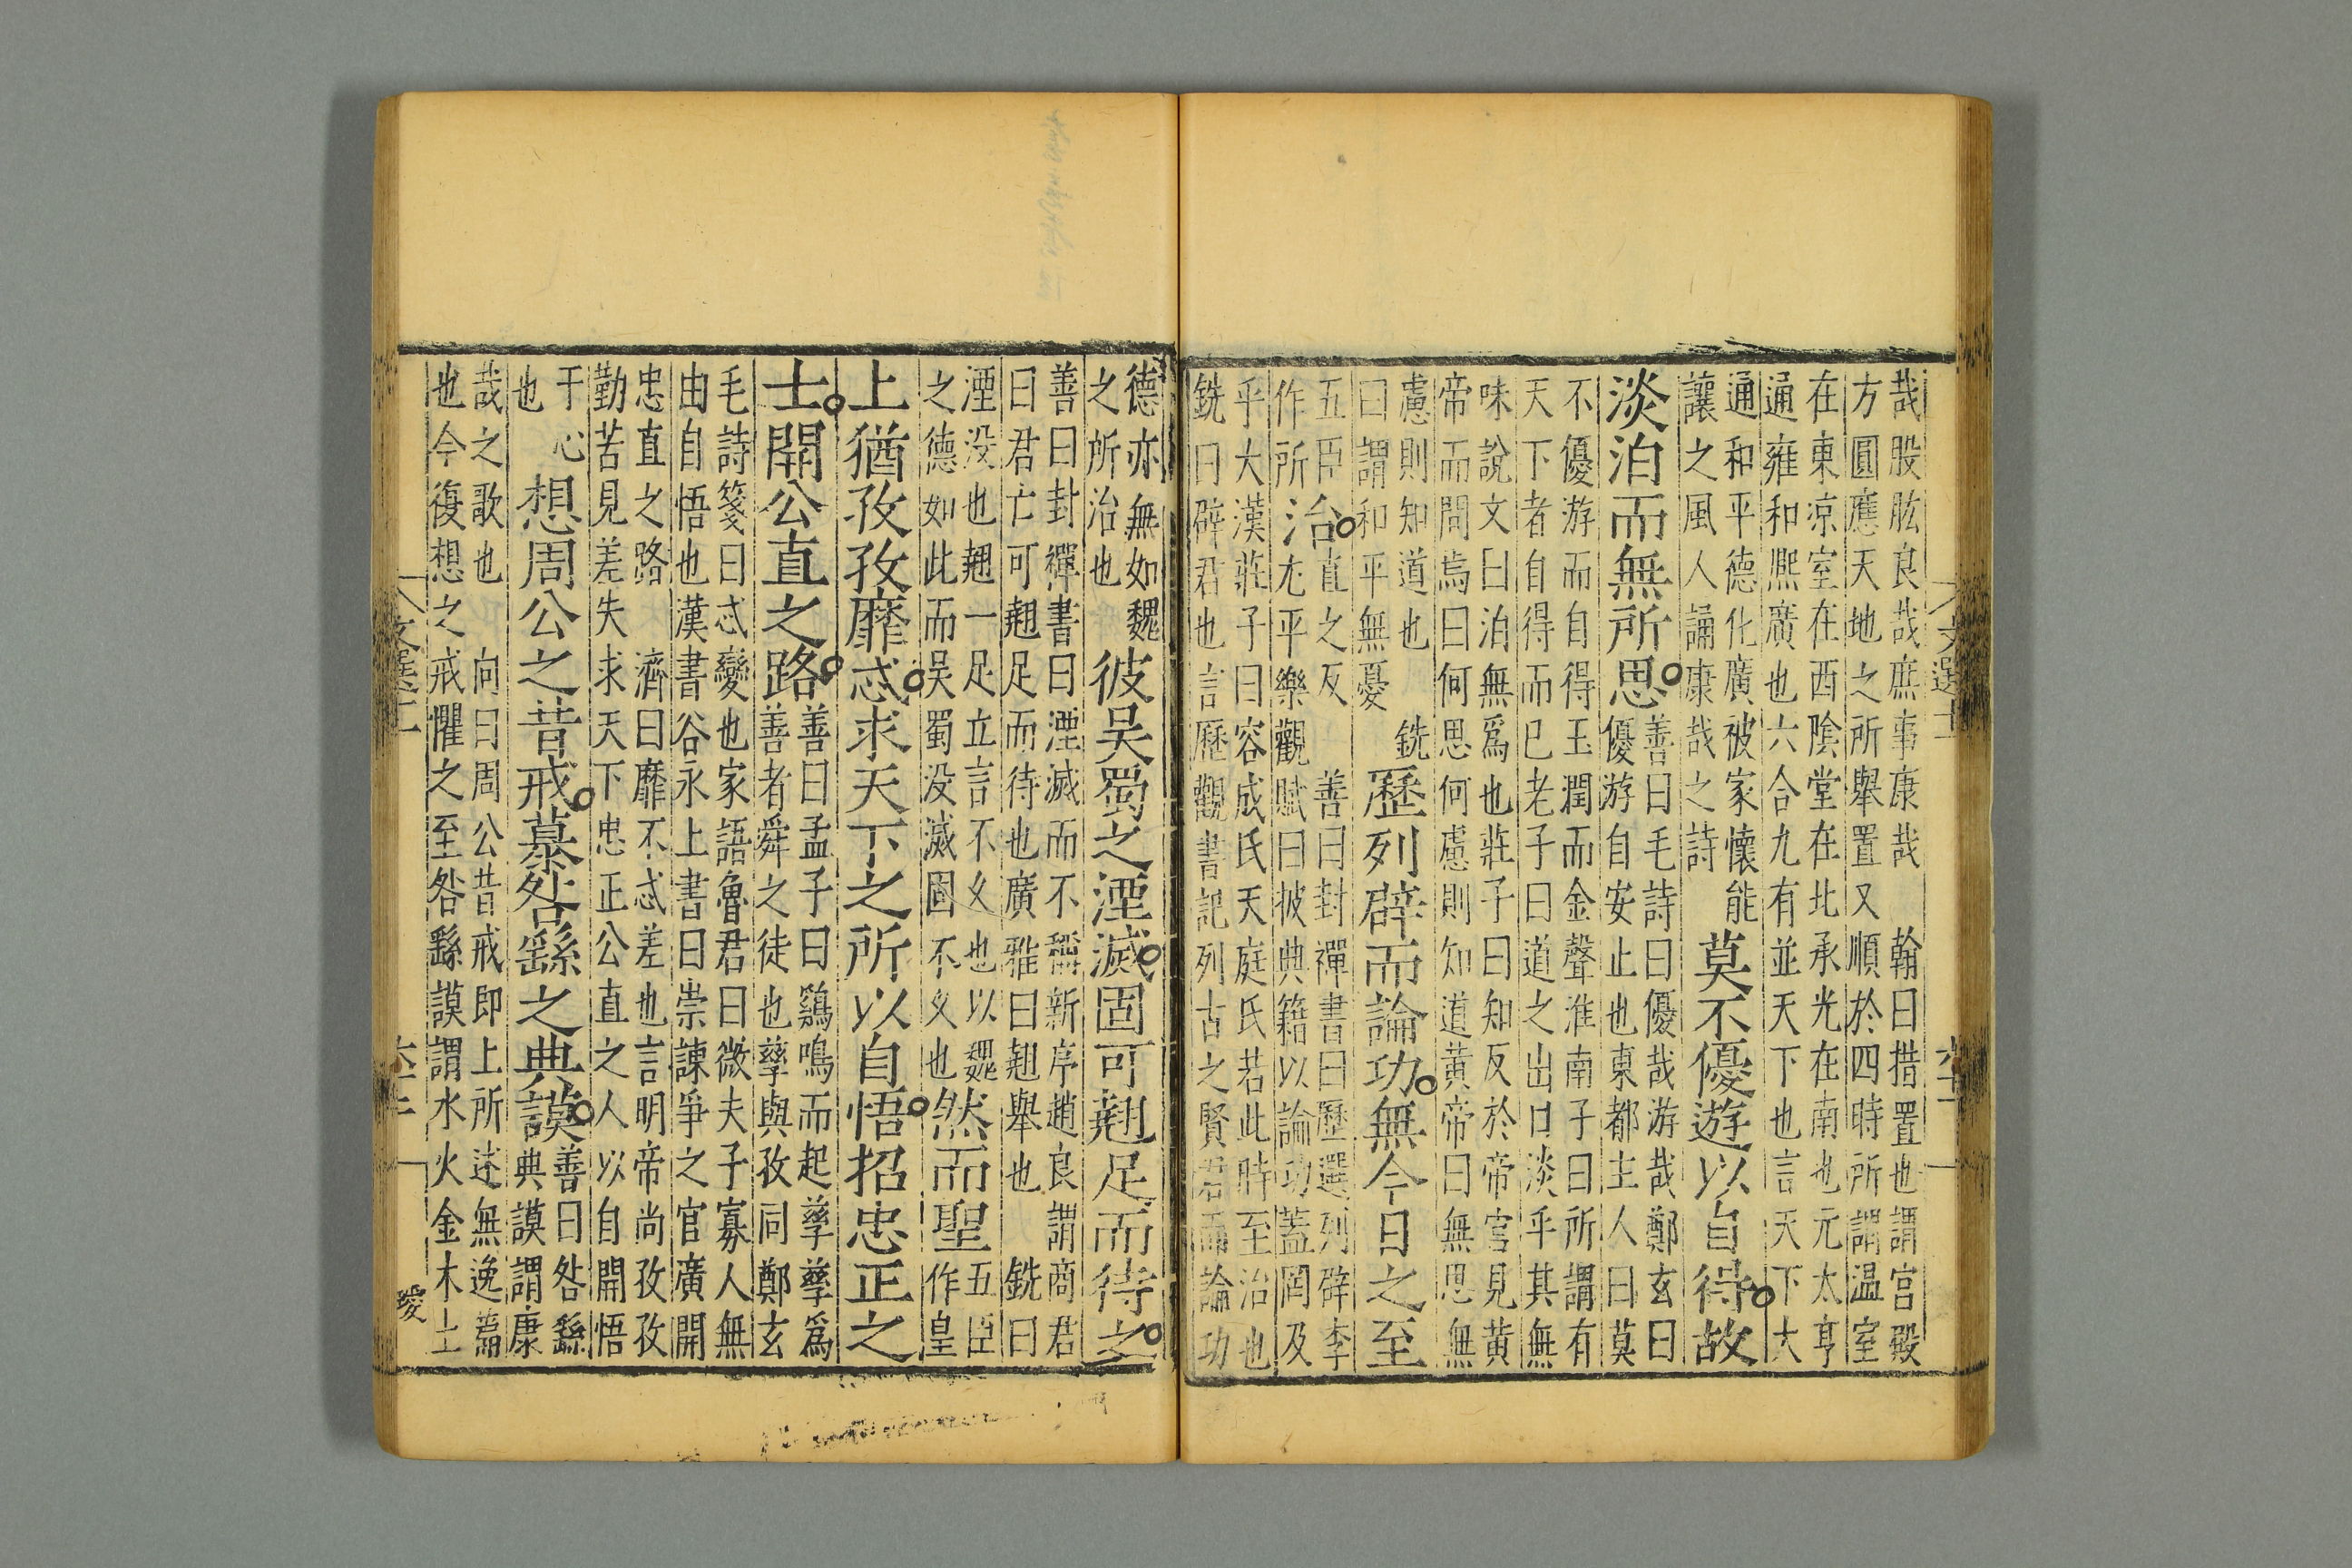 哉股肱良哉庶事康哉　翰曰措置也謂宫殿
方圓應天地之所舉置又順於四時所謂温室
在東凉室在西陰堂在北承光在南也元太亨
通雍和熈廣也六合九有並天下也言天下大
通和平德化廣被家懷能
讓之風人誦康哉之詩
莫不優遊以自得故
淡泊而無所思
善曰毛詩曰優哉游哉鄭玄曰
優游自安止也東都主人曰莫
不優游而自得玉潤而金聲淮南子曰所謂有
天下者自得而已老子曰道之出口淡乎其無
味說文曰泊無爲也莊子曰知反於帝宫見黄
帝而問焉曰何思何慮則知道黄帝曰無思無
慮則知道也　銑
曰謂和平無憂
歷列辟而論功無今日之至
五臣　直之反
作所
治
善曰封禪書曰歷選列辟李
尤平樂觀賦曰披典籍以論功蓋罔及
乎大漢莊子曰容成氏天庭氏若此時至治也
銑曰辟君也言歷觀書記列古之賢君而論功
德亦無如魏
之所治也
彼吴蜀之湮滅固可翹足而待之
善曰封禪書曰湮滅而不稱新序趙良謂商君
曰君亡可翹足而待也廣雅曰翹舉也　銑曰
湮没也翹一足立言不乆也以魏
之德如此而吴蜀没滅固不乆也
然而聖
五臣
作皇
上猶孜孜靡忒求天下之所以自悟招忠正之
士開公直之路
善曰孟子曰鷄鳴而起孳孳爲
善者舜之徒也孳與孜同鄭玄
毛詩箋曰忒變也家語魯君曰微夫子寡人無
由自悟也漢書谷永上書曰崇諫爭之官廣開
忠直之路　濟曰靡不忒差也言明帝尚孜孜
勤苦見差失求天下忠正公直之人以自開悟
于心
也
想周公之昔戒慕咎繇之典謨
善曰咎繇
典謨謂康
哉之歌也　向曰周公昔戒即上所述無逸篇
也今復想之戒懼之至咎繇謨謂水火金木土